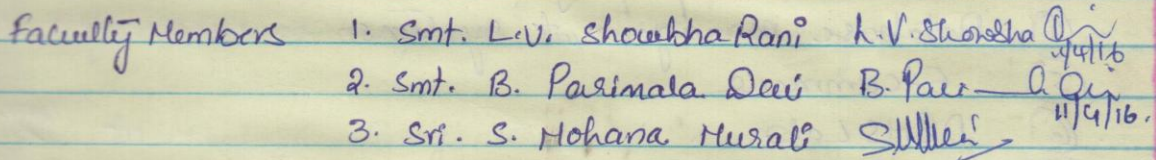 Faculty Members 1. Smt. L.V. Showbha Rani L.V. Shonsha 11/4/16
2. Smt. B. Parimala Davi B. Pari 11/4/16.
3. Sri. S. Mohana Murali